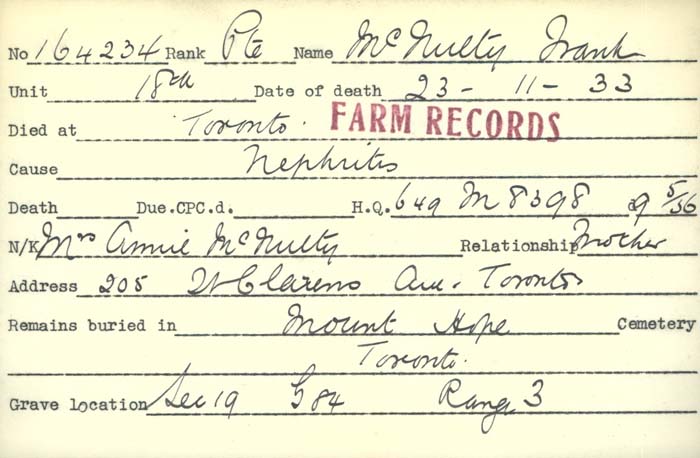 No 164234 Rank Pte Name McNulty Frank
Unit 18th Date of death 23 - 11 - 33
Died at Toronto. FARM RECORDS
Cause Nephritis
Death Due.CPC.d. H.Q. 649 M 8398
N/K Mrs Annie McNulty Relationship Mother
Address 205 St Clarens Ave. Toronto
Remains buried in Mount Hope Cemetery
Toronto.
Grave location Sec 19 G 84 Range 3